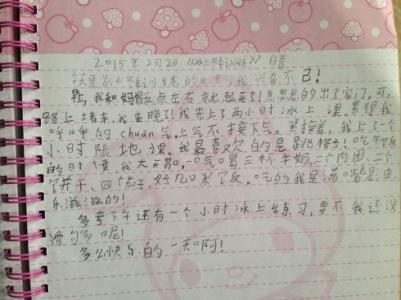 2015年2月2日《冰上集训的一天》晴
这是我们集训的第一天,我兴奋不已!
早上,我和妈妈五点左右就起来了!急急忙忙的出了家门,可
路上堵车,我来晚了!我先上了两小时冰上课,累得我
呼呼的chuan气,上气不接下气。紧接着,我上了一个
小时陆地课。我最喜欢的是跳绳!吃午饭
的时候,我大胃口,一口气喝三杯牛奶,三个肉团,一个
饼干、四个茄子,好几口米饭。吃的我是满嘴是油
乐滋滋的!
多幸下午还有一个小时冰上练习,要不我还没
滑够呢!
多么快乐的一天啊!